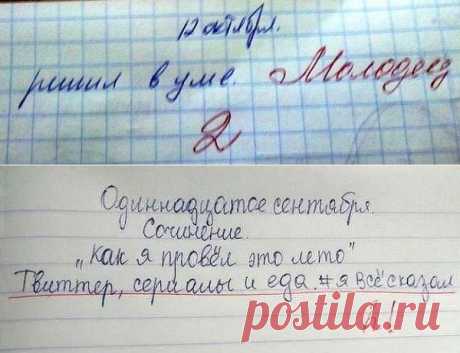 12 октября.
решил в уме. Молодец
2
Одиннадцатое сентября.
Сочинение.
„Как я провёл это лето"
Твиттер, сериалы и еда. #я всё сказал
postila.ru